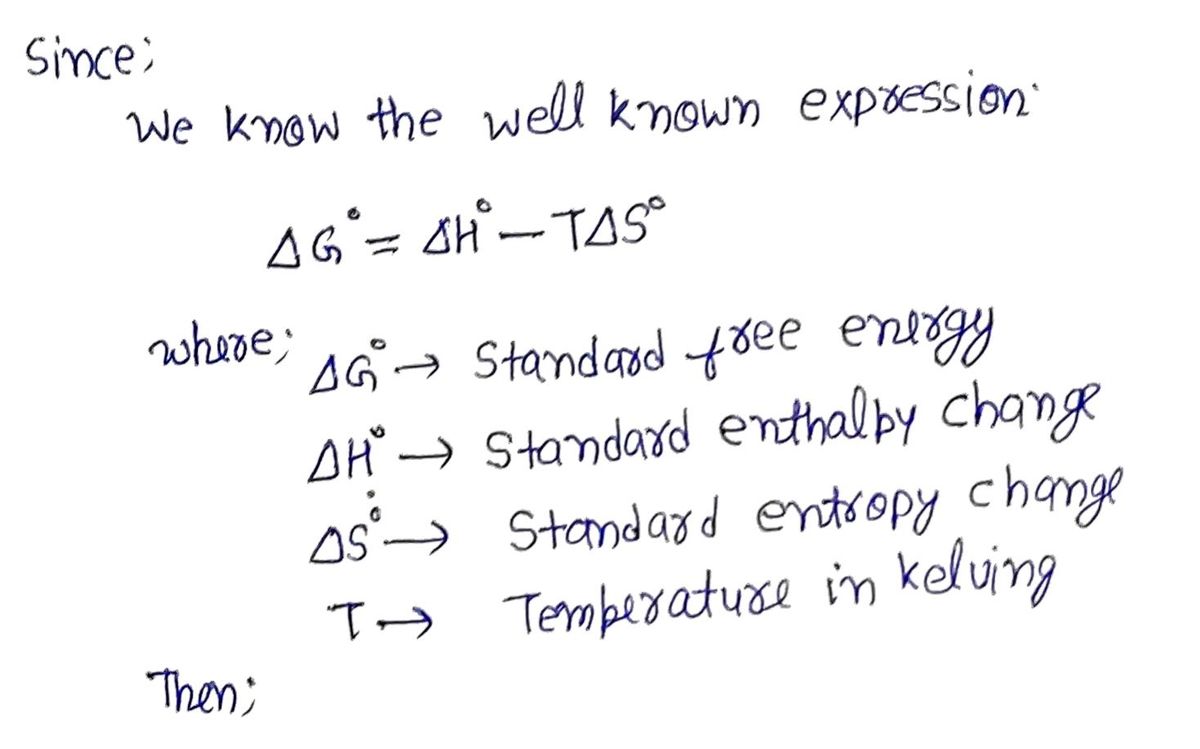 Since;
We know the well known expression
ΔG° = ΔH° – TΔS°
where; ΔG° → Standard free energy
ΔH° → Standard enthalpy change
ΔS° → Standard entropy change
T → Temperature in kelving
Then;